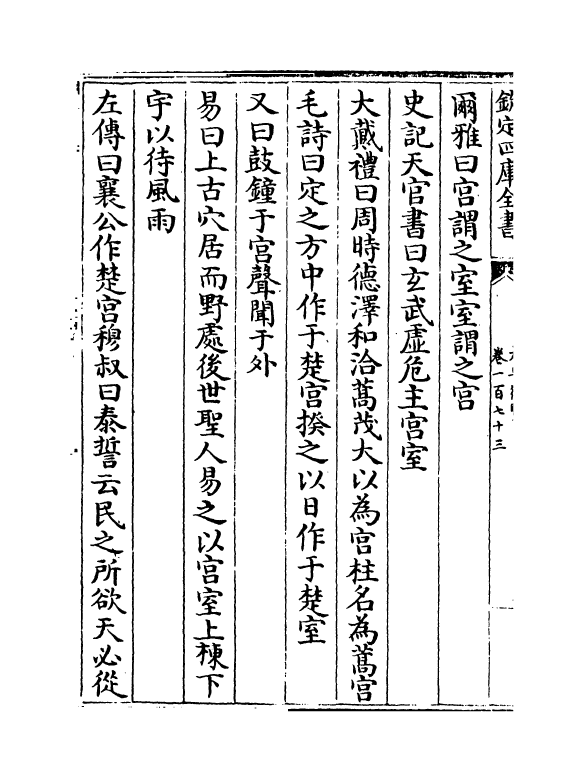 欽定四庫全書
卷一百七十三
爾雅曰宫謂之室室謂之宫
史記天官書曰玄武虚危主宫室
大戴禮曰周時德澤和洽蒿茂大以為宫柱名為蒿宫
毛詩曰定之方中作于楚宫揆之以日作于楚室
又曰鼓鐘于宫聲聞于外
易曰上古穴居而野處後世聖人易之以宫室上棟下
宇以待風雨
左傳曰襄公作楚宫穆叔曰泰誓云民之所欲天必從